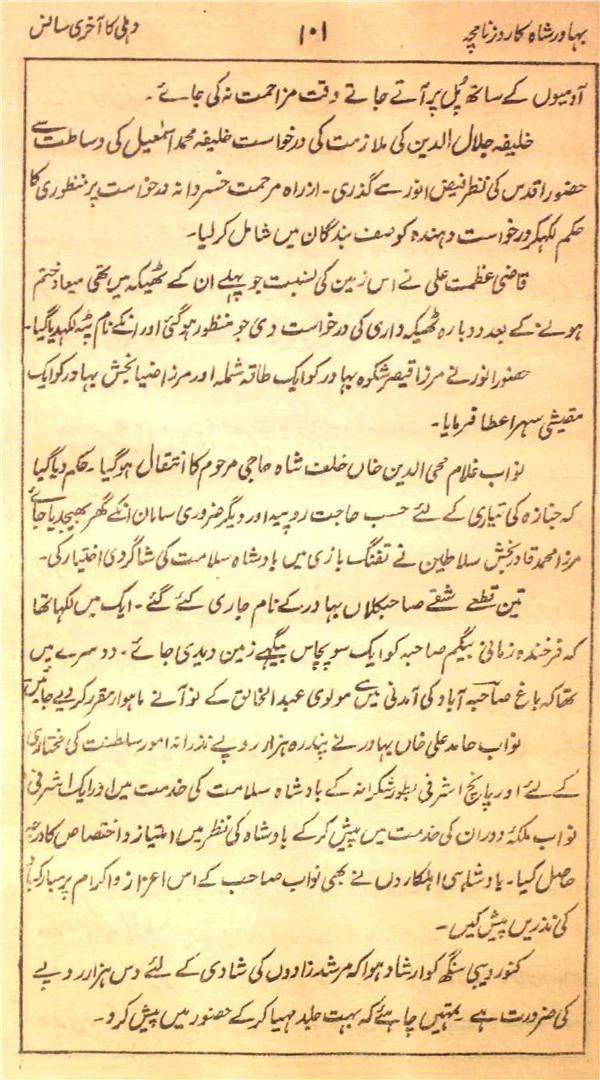 بہادر شاہ کا روزنامچہ ۱۰۱ دہلی کا آخری سانس
آدمیوں کے ساتھ پُل پر آتے جاتے وقت مزاحمت نہ کی جائے۔
خلیفہ جلال الدین کی ملازمت کی درخواست خلیفہ محمد اسمٰعیل کی وساطت سے
حضور اقدس کی نظر فیض انور سے گذری۔ ازراہ مرحمت خسروانہ درخواست پر منظوری کا
حکم لکھکر درخواست دہندہ کو صف بندگان میں شامل کر لیا۔
قاضی عظمت علی نے اس زمین کی نسبت جو پہلے ان کے ٹھیکہ میں تھی میعاد ختم
ہونے کے بعد دوبارہ ٹھیکہ داری کی درخواست دی جو منظور ہو گئی اور انکے نام پٹہ لکھدیا گیا۔
حضور انور نے مرزا قیصر شکوہ بہادر کو ایک طاقہ شملہ اور مرزا ضیا بخش بہادر کو ایک
مقیشی سہرا عطا فرمایا۔
نواب غلام محی الدین خاں خلف شاہ حاجی مرحوم کا انتقال ہو گیا۔ حکم دیا گیا
کہ جنازہ کی تیاری کے لئے حسب حاجت روپیہ اور دیگر ضروری سامان انکے گھر بھیجدیا جائے
مرزا محمد قادر بخش سلاطین نے تفنگ بازی میں بادشاہ سلامت کی شاگردی اختیار کی۔
تین قطعے شقے صاحب کلاں بہادر کے نام جاری کئے گئے۔ ایک میں لکھا تھا
کہ فرخندہ زمانی بیگم صاحبہ کو ایک سو پچاس بیگھے زمین دیدی جائے۔ دوسرے میں
تھا کہ باغ صاحبہ آباد کی آمدنی میں سے مولوی عبدالخالق کے نو آنے ماہوار مقرر کر دیے جائیں
نواب حامد علی خاں بہادر نے پندرہ ہزار روپے نذرانہ امور سلطنت کی مختاری
کے لئے اور پانچ اشرفی بطور شکرانہ کے بادشاہ سلامت کی خدمت میں اور ایک اشرفی
نواب ملکۂ دوراں کی خدمت میں پیش کر کے بادشاہ کی نظر میں امتیاز و اختصاص کا درجہ
حاصل کیا۔ بادشاہی اہلکاروں نے بھی نواب صاحب کے اس اعزاز و اکرام پر مبارکباد
کی نذریں پیش کیں۔
کنور دیبی سنگھ کو ارشاد ہوا کہ مرشد زادوں کی شادی کے لئے دس ہزار روپے
کی ضرورت ہے۔ تمہیں چاہئے کہ بہت جلد مہیا کر کے حضور میں پیش کرو۔